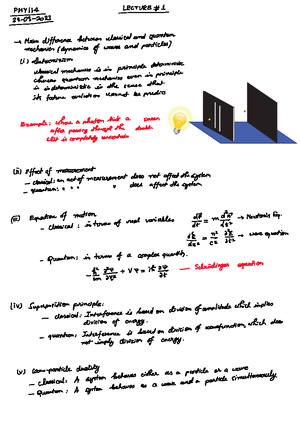 PHY114
LECTURE #1
→ Main difference between classical and quantum
mechanics (dynamics of wave and particles)
(i) Determinism
classical mechanics is in principle deterministic
whereas quantum mechanics even in principle
is indeterministic in the sense that
its future evolution cannot be predic
Example: when a photon hits a screen
after passing through the double
slit is completely uncertain
(ii) Effect of measurement
- classical: an act of measurement does not affect the system
- quantum: " " " " does affect the system
(iii) Equation of motion
- classical: in terms of real variables
→ Newton's Eq.
→ wave equation
- Quantum: in terms of a complex quantity.
— Schrödinger equation
(iv) Superposition principle:
- classical: Interference is based on division of amplitude which implies
division of energy.
- quantum: Interference is based on division of wavefunction which does
not imply division of energy.
(v) wave-particle duality
- Classical: A system behaves either as a particle or a wave
- Quantum: A system behaves as a wave and a particle simultaneously.